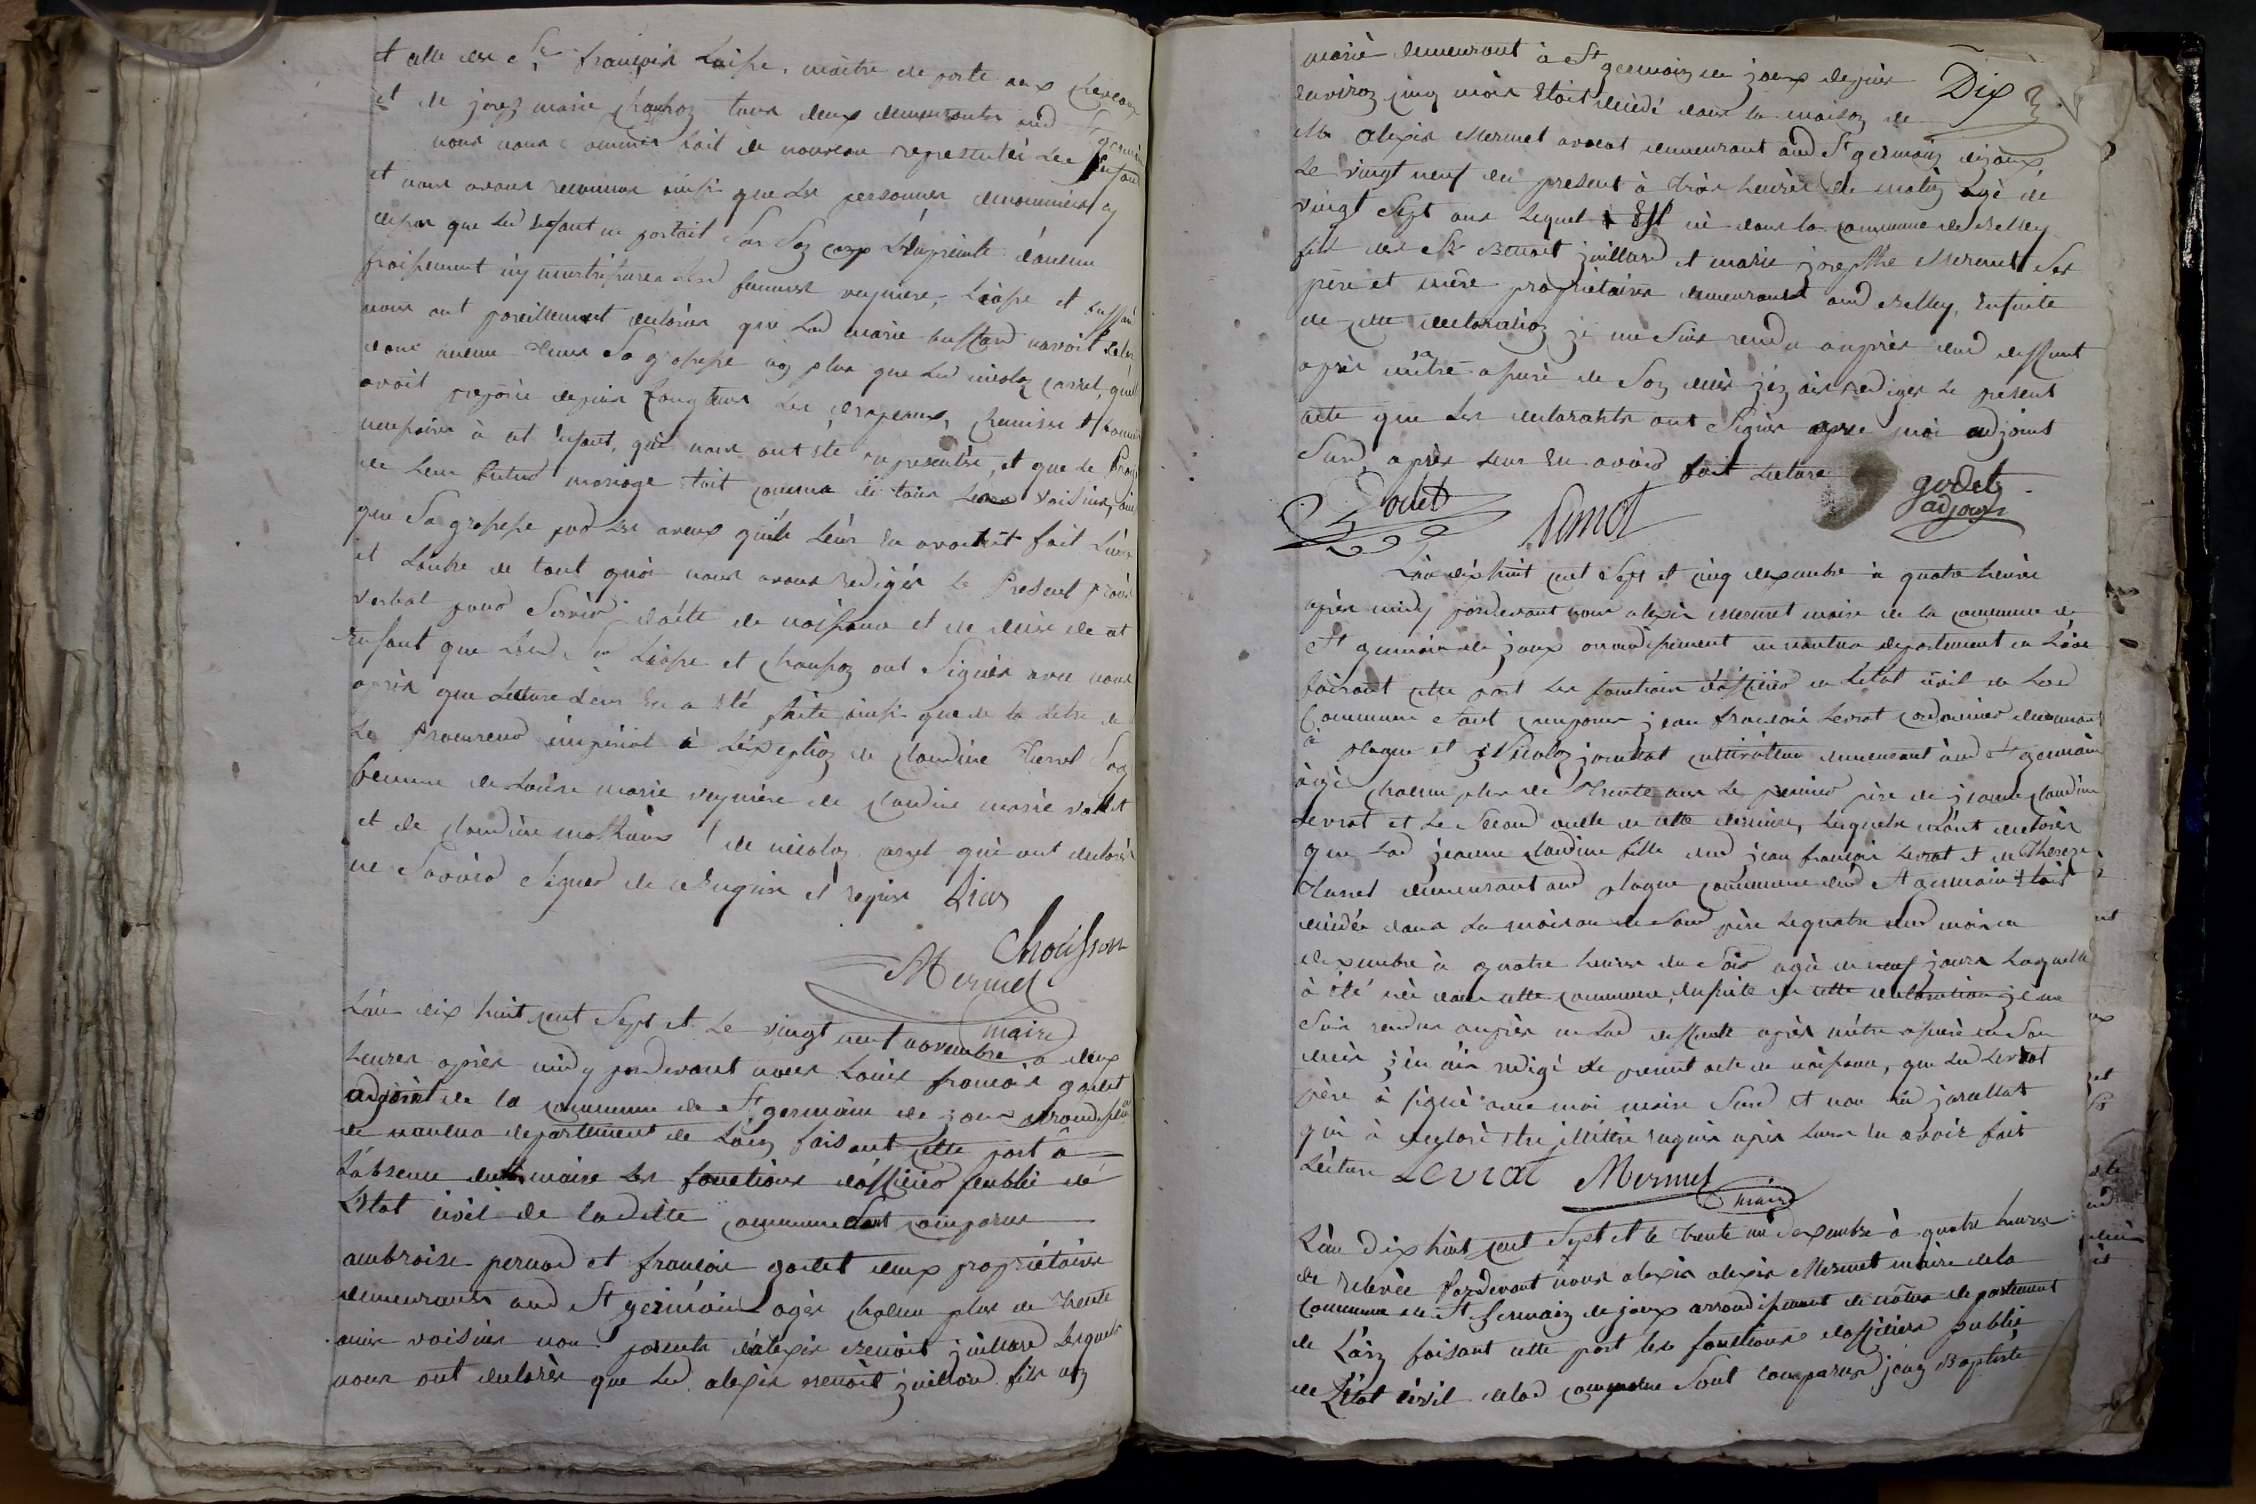 et celle de Sr françois Liasse, maître de poste aux chevaux
et de josez marie chanhoz tous deux demeurants aud St germain
nous nous sommes fait de nouveau representer led Enfant
et nous avons reconnus ainsi que les personnes denommées cy
dessus que led Enfant ne portait sur soz corp L'Empreinte d'aucun
froissement ny meurtrissures lesd femmes reyniere, Liasse et
nous ont pareillement declarées que lad marie navoit celée
dans aucun tems sa grossesse noz plus que led nicolaz carrel, quelle
avoit preparé depuis Longtems Les drapeaux, chemises et bonnets
necessaires à cet Enfant, qui nous ont été representés, et que le
de leur futur mariage étoit connu de tous Leurs voisins, ainsi
que sa grossesse par les aveux quils Leurs En avoient fait L'un
et Lautre de tout quoi nous avons redigés le Present procès
verbal pour servir d'acte de naissance et de décès de cet
Enfant que Lesd Srs Liasse et chanhoz ont signés avec nous
après que Lecture Leur En a été faite ainsi que de la Lettre de
Le Procureur impérial à Léxceptioz de claudine
femme de Louise marie reyniere de claudine marie
et de claudine mathieux de nicolaz carrel qui ont declarés
ne savoir signer de Enquis et requis Lias
Chousson
Mermet
maire
L'an dix huit cent sept et le vingt neuf novembre à deux
heures après midy pardevant nous Louis françois godet
adjoint de la commune de St germain de joux arrondissement
de nantua departement de L'aiz faisant cette part à
L'absence du maire les fonctions d'officier public de
L'Etat civil de ladite commune sont comparus
ambroise pernod et françois godet deux propriétaires
demeurants aud St germain agés chacun plus de trente
ans voisins non parents d'alexis benoit juillard lesquels
nous ont declarés que led alexis benoit juillard fils noz
Dix
marié demeurant à St germaiz de joux depuis
Environ cinq mois Etoit décédé dans la maisoz de
Mr Alexis Mermet avocat demeurant aud St germaiz de joux
Le vingt neuf du present à trois heures du matiz Agé de
vingt sept ans Lequel Est né dans la commune de Belley
fils de Sr Benoit juillard et marie josephte Mermet ses
père et mère propriétaires demeurants aud Belley, Ensuite
de cette declaratioz je me suis rendu auprès dud deffunt
après m'être assuré de soz décès j'ez ais rediger le présent
acte que les declarants ont signés avec moi adjoint
susd, après Leur En avoir fait Lecture
godet
godet
adjoint
L'an dix huit cent sept et cinq dexembre à quatre heures
après midy pardevant nous alexis Mermet maire de la commune de
St germain de joux arrondissement de nantua departement de L'ain
faisant cette part les fonctions d'officier de L'etat civil de lad
Commune etant comparus jean françois Levrat cordonnier demeurant
à plagne et Nicolaz cultivateur demeurant aud St germain
agé chacun plus de trente ans Le premier père de jeanne claudine
Levrat et Le second oncle de cette dernière, lesquels m'ont declarés
que lad jeanne claudine fille dud jean françois Levrat et de Thereze
demeurant aud plagne commune dud St germain étoit
décédée dans La maison de Sond père le quatre dud mois de
dexembre à quatre heures du soir agée de neuf jours Laquelle
à été née dans cette commune, Ensuite de cette declaration je me
suis rendu auprès de lad deffunte après m'être assuré de son
décès j'en ais redigé le present acte de naissance, que led Levrat
père à signé avec moi maire susd et non led
qui à déclaré être illitéré Enquis après Leur En avoir fait
Lecture Levrat Mermet
maire
L'an dix huit cent sept et le trente un dexembre à quatre heures
de relevée Pardevant nous alexis alexis Mermet maire dela
commune de St Germaiz de joux arrondissement de nantua departement
de L'aiz faisant cette part les fonctions dofficiers public
de L'Etat civil delad commune sont comparus jean Baptiste